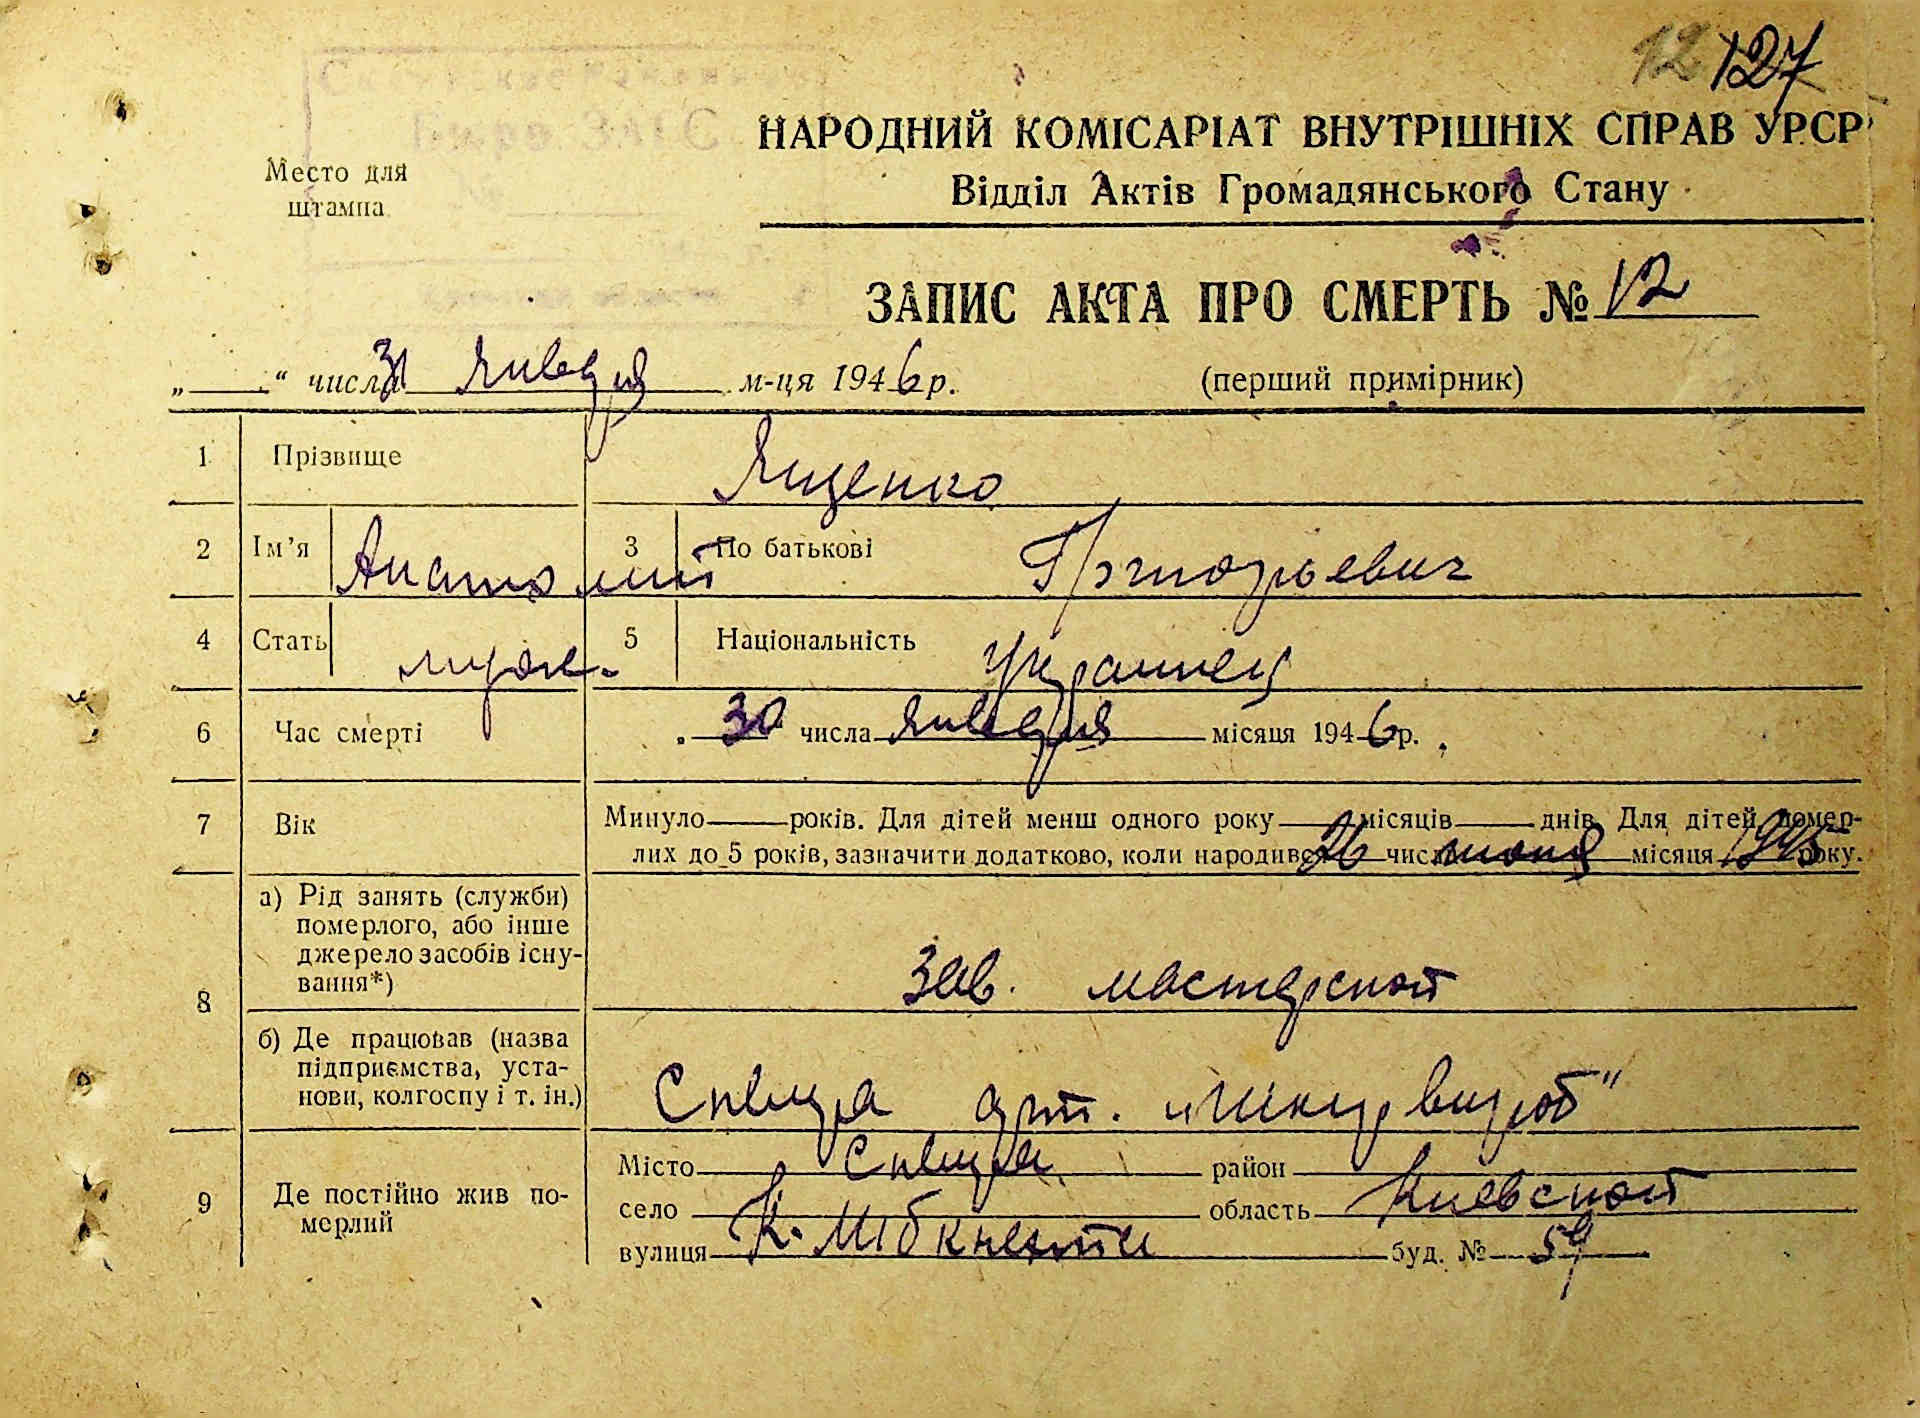 12 127
НАРОДНИЙ КОМІСАРІАТ ВНУТРІШНІХ СПРАВ УРСР
Відділ Актів Громадянського Стану
Место для
штампа
Бюро ЗАГС
ЗАПИС АКТА ПРО СМЕРТЬ № 12
„ “ числа 31 января м-ця 1946 р.
(перший примірник)
1 Прізвище Ященко
2 Ім’я Анатолий 3 По батькові Григорьевич
4 Стать муж. 5 Національність украинец
6 Час смерті 30 числа января місяця 1946 р.
7 Вік Минуло років. Для дітей менш одного року місяців днів. Для дітей помер-
лих до 5 років, зазначити додатково, коли народився 26 числа июня місяця 1945 року.
8 а) Рід занять (служби)
померлого, або інше
джерело засобів існу-
вання*)
Зав. мастерской
б) Де працював (назва
підприємства, уста-
нови, колгоспу і т. ін.)
Сквира арт. „Шкірвироб“
9 Де постійно жив по-
мерлий
Місто Сквира район
село область Киевской
вулиця К. Лібкнехта буд. № 59